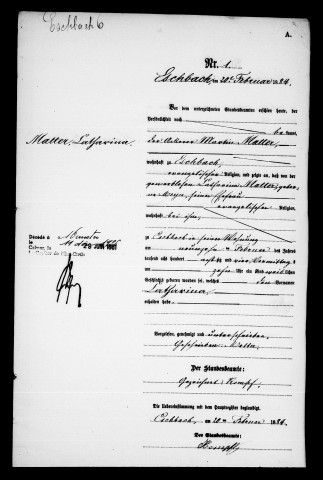 Eschbach 6
A.
Nr. 1.
Eschbach, am 20ten Februar 1884.
Vor dem unterzeichneten Standesbeamten erschien heute, der
Persönlichkeit nach
be kannt,
der Ackerer Martin Matter,
Matter, Catharina
wohnhaft zu Eschbach,
evangelischer Religion, und zeigte an, daß von der
gewerblosen Catharina Matter, gebor-
ne Meyer, seiner Ehefrau
evangelischer Religion,
wohnhaft bei ihm,
zu Eschbach in seiner Wohnung
am neunzehnten Februar des Jahres
tausend acht hundert achtzig und vier Vormittags
um zehn Uhr ein Kind weib lichen
Geschlechts geboren worden sei, welches den Vornamen
Catharina
erhalten habe.
Décédé à Munster
le
Colmar, le
Le Greffier de l'État Civil
Vorgelesen, genehmigt und unterschrieben,
Geschrieben Matter
Der Standesbeamte:
Gezeichnet: Kempf.
Die Uebereinstimmung mit dem Hauptregister beglaubigt.
Eschbach, am 20ten Februar 1884.
Der Standesbeamte:
Kempf